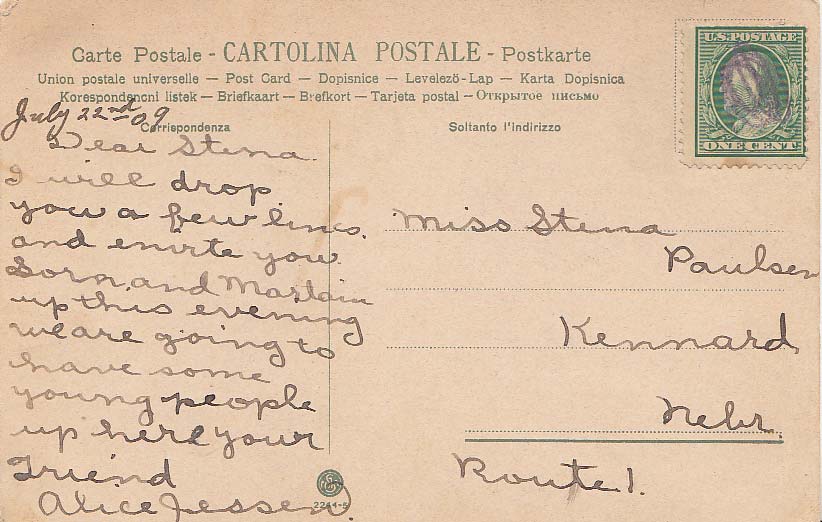 Carte Postale - CARTOLINA POSTALE - Postkarte
Union postale universelle — Post Card — Dopisnice — Levelező-Lap — Karta Dopisnica
Korespondencni listek — Briefkaart — Brefkort — Tarjeta postal — Открытое письмо
U.S. POSTAGE
ONE CENT
July 22nd 09
Corrispondenza
Soltanto l'indirizzo
Dear Stena.
I will drop
you a few lines.
and envite you
Sorn, and Martain
up this evening
we are going to
have some
young people
up here your
Friend
Alice Jessen.
2244-5
Miss Stena
Paulsen
Kennard
Nebr.
Route 1.